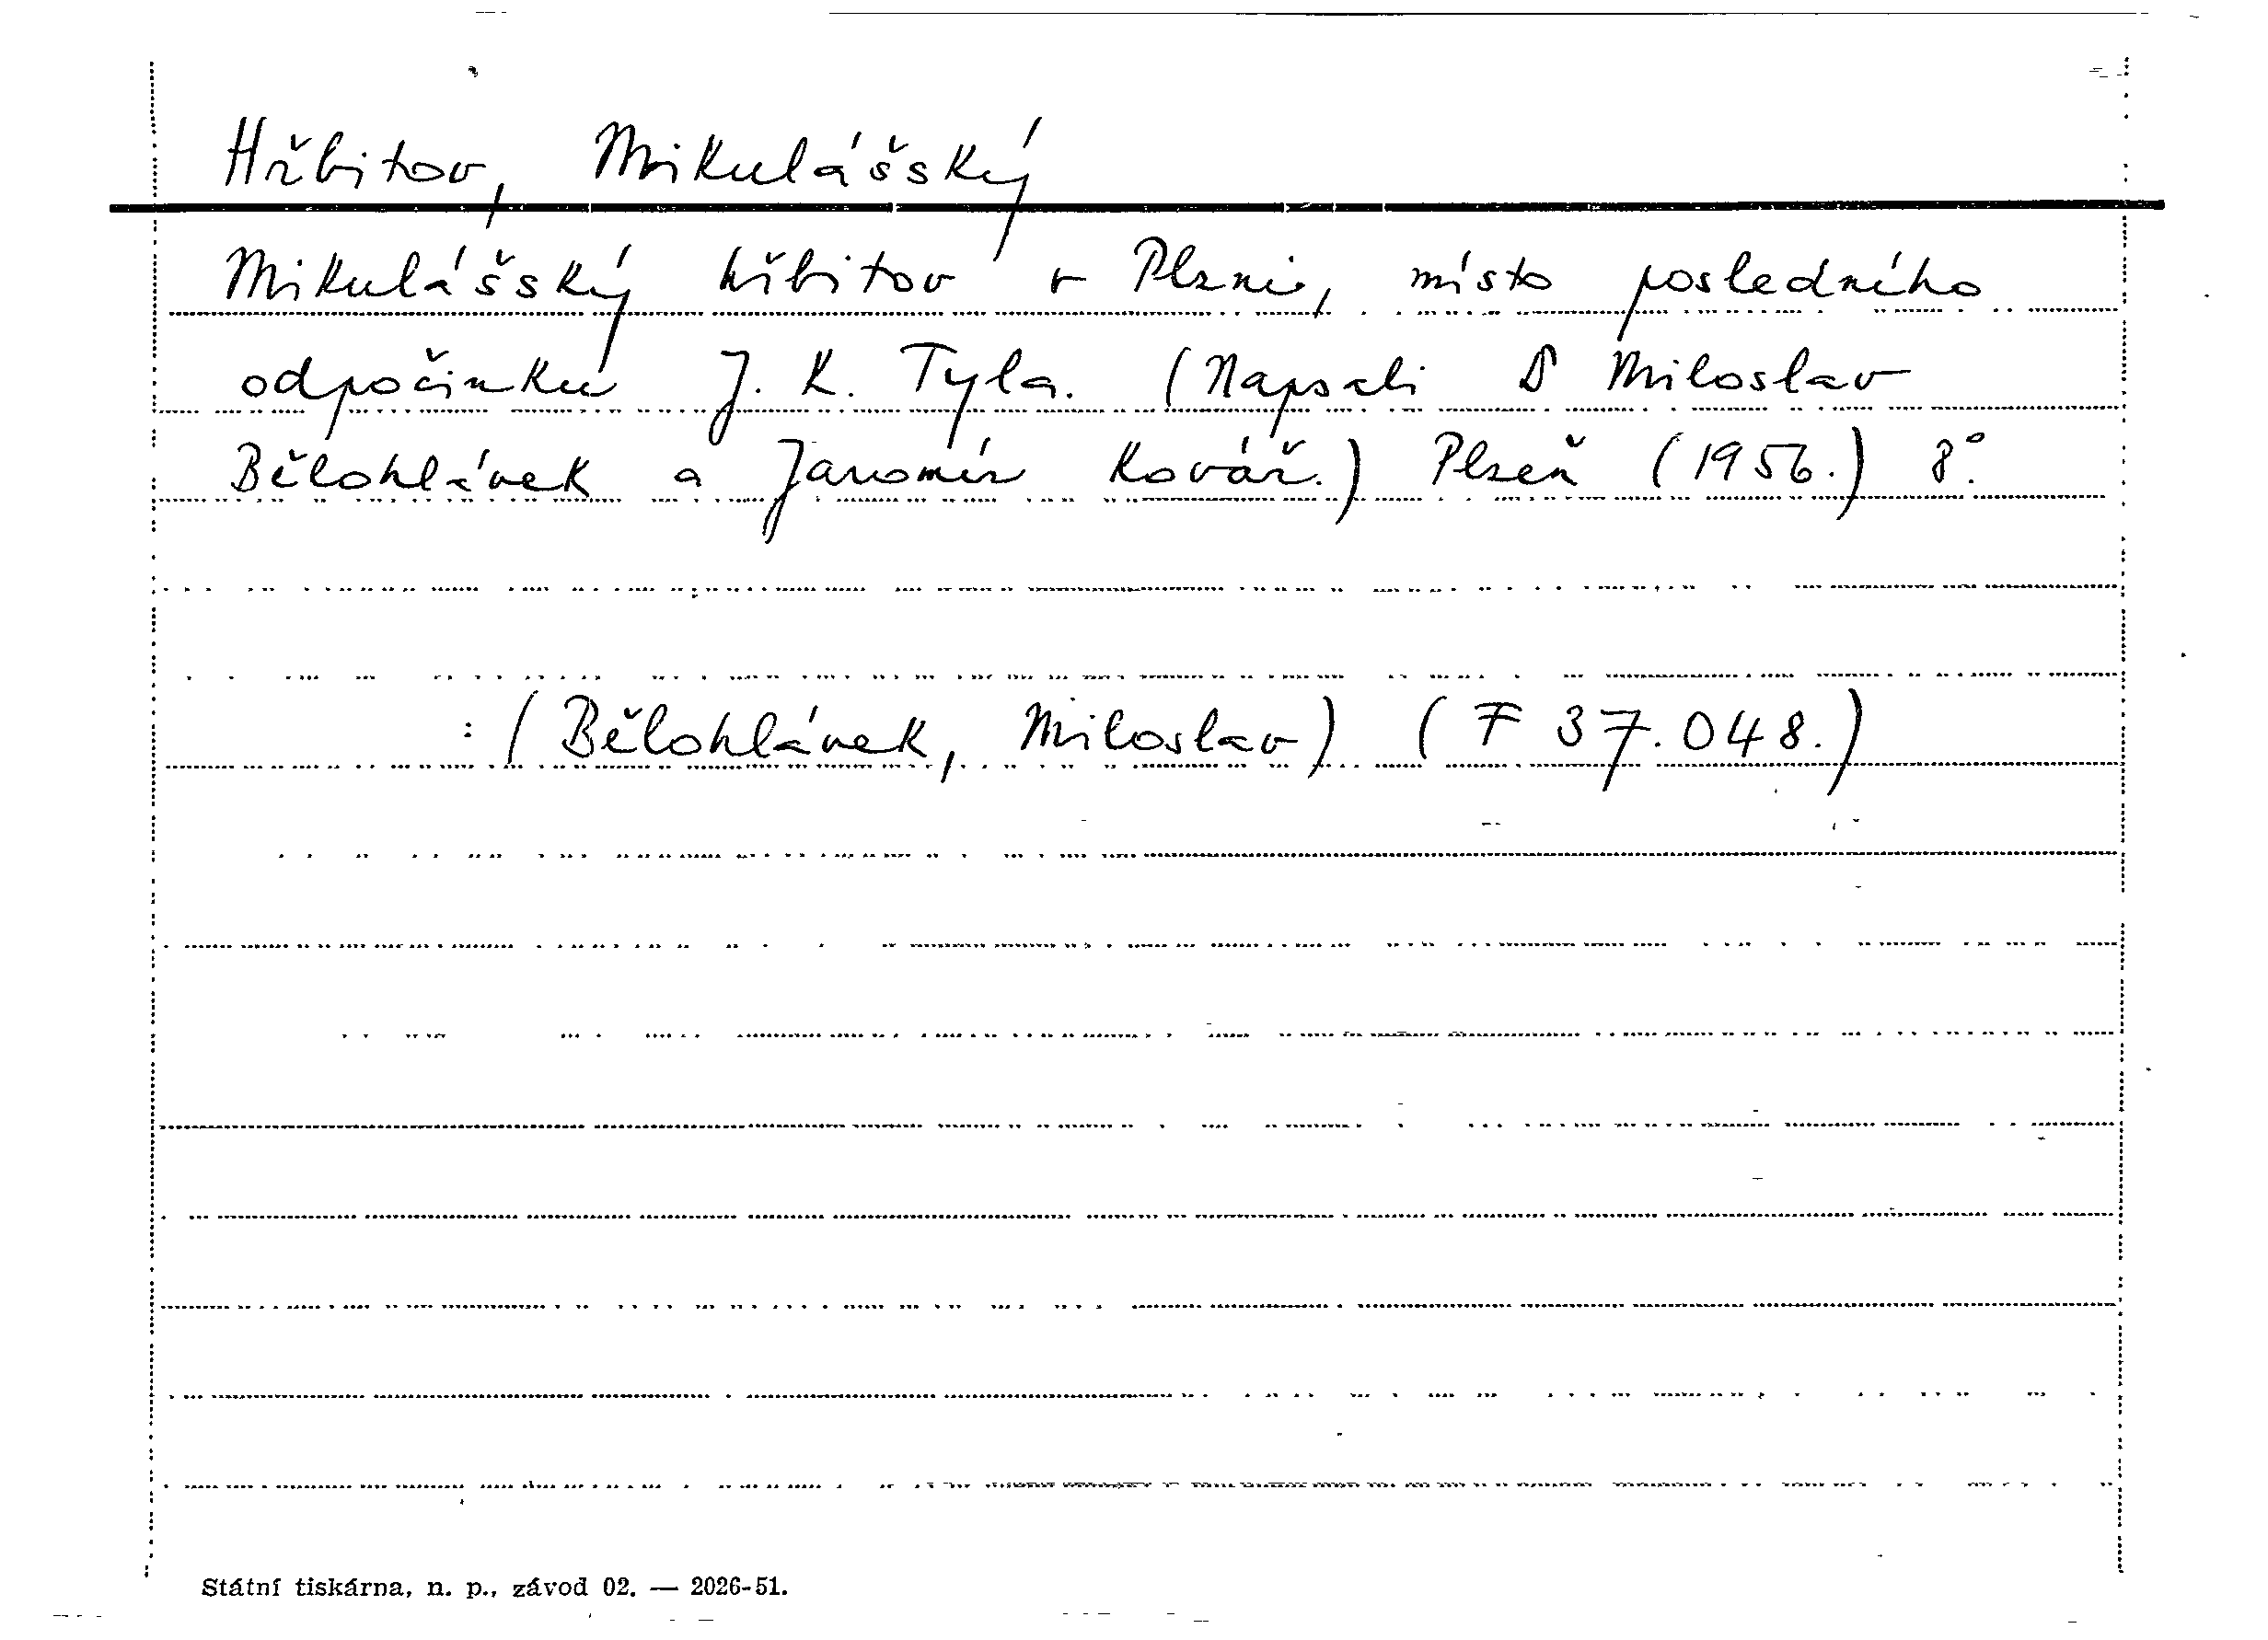 Hřbitov, Mikulášský
Mikulášský hřbitov v Plzni, místo posledního
odpočinku J. K. Tyla. (Napsali Miloslav
Bělohlávek a Jaromír Kovář.) Plzeň (1956.) 8°.
: (Bělohlávek, Miloslav) (F 37.048.)
Státní tiskárna, n. p., závod 02. — 2026-51.